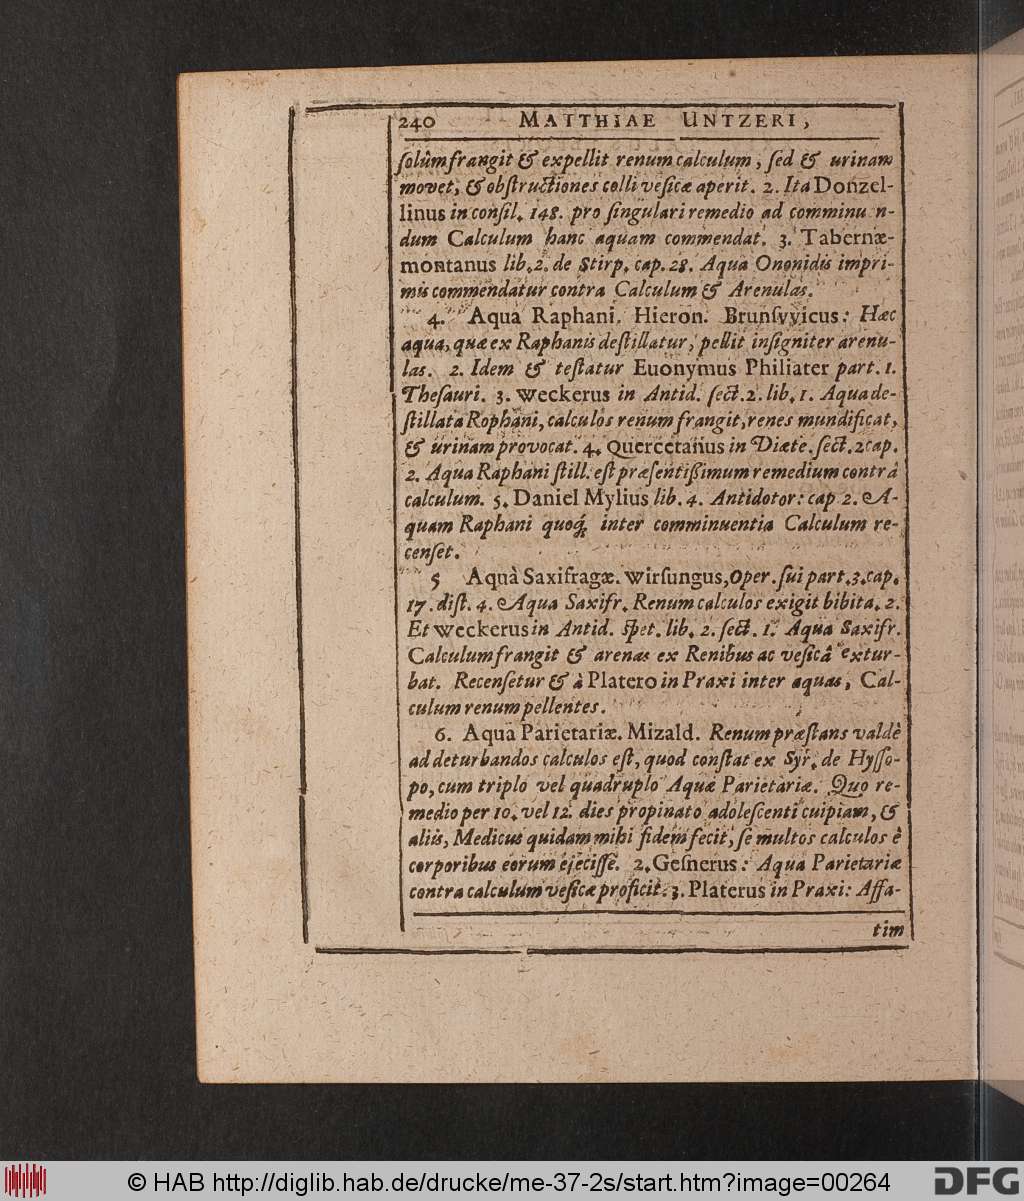 240 MATTHIAE UNTZERI,
ſolùm frangit & expellit renum calculum, ſed & urinam
movet, & obſtructiones colli veſicæ aperit. 2. Ita Donzel-
linus in conſil. 148. pro ſingulari remedio ad comminuen-
dum Calculum hanc aquam commendat. 3. Tabernæ-
montanus lib. 2. de Stirp. cap. 28. Aqua Ononidis impri-
mis commendatur contra Calculum & Arenulas.
4. Aqua Raphani. Hieron. Brunſvvicus: Hæc
aqua, quæ ex Raphanis deſtillatur, pellit inſigniter arenu-
las. 2. Idem & teſtatur Euonymus Philiater part. 1.
Theſauri. 3. Weckerus in Antid. ſect. 2. lib. 1. Aqua de-
ſtillata Rophani, calculos renum frangit, renes mundificat,
& urinam provocat. 4. Quercetanus in Diæte. ſect. 2 cap.
2. Aqua Raphani ſtill. eſt præſentißimum remedium contrà
calculum. 5. Daniel Mylius lib. 4. Antidotor: cap 2. A-
quam Raphani quoq́; inter comminuentia Calculum re-
cenſet.
5 Aquà Saxifragæ. Wirſungus, Oper. ſui part. 3. cap.
17. diſt. 4. Aqua Saxifr. Renum calculos exigit bibita. 2.
Et Weckerus in Antid. Spet. lib. 2. ſect. 1. Aqua Saxifr.
Calculum frangit & arenas ex Renibus ac veſicâ extur-
bat. Recenſetur & à Platero in Praxi inter aquas, Cal-
culum renum pellentes.
6. Aqua Parietariæ. Mizald. Renum præſtans valdè
ad deturbandos calculos eſt, quod conſtat ex Syr. de Hyſſo-
po, cum triplo vel quadruplo Aquæ Parietariæ. Quo re-
medio per 10. vel 12. dies propinato adoleſcenti cuipiam, &
aliis, Medicus quidam mihi fidem fecit, ſe multos calculos è
corporibus eorum ejeciſſe. 2. Geſnerus: Aqua Parietariæ
contra calculum veſicæ proficit. 3. Platerus in Praxi: Aſſa-
tim
© HAB http://diglib.hab.de/drucke/me-37-2s/start.htm?image=00264
DFG